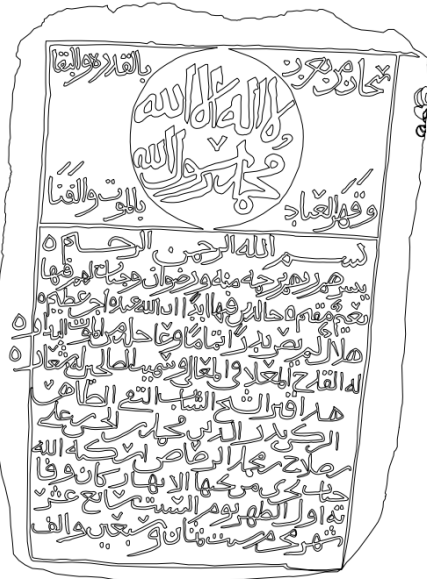 سبحان من تعزز
بالقدرة والبقا
لا اله الا الله
محمد رسول الله
وقهر العباد
بالموت والفنا
بسم الله الرحمن الرحيم
يبشرهم ربهم برحمة منه ورضوان وجنات لهم فيها
نعيم مقيم خالدين فيها ابدا ان الله عنده اجر عظيم
هلال لم يصر بدرا تماما وعاجله من الموت
له القدح المعلا في المعالي وسميت الصالحين له شعار
هذا قبر الشيخ الشاب التقي الطاهر
بدر الدين محمد بن علي
بن صلاح بن محمد الرصاص اسكنه الله
جنات تجري من تحتها الانهار وكان وفا
ته اول الظهر يوم السبت رابع عشر
شهر محرم سنت ثمان وسبعين والف